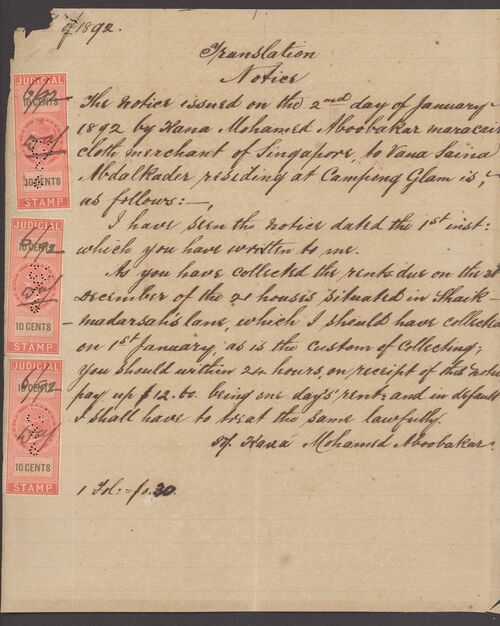 of 1892.
Translation
Notice
The Notice issued on the 2nd day of January
1892 by Kana Mohamed Aboobakar maracair
cloth merchant of Singapore to Vana Saina
Abdalkader residing at Campong Glam is,
as follows:-
I have seen the notice dated the 1st inst:
which you have written to me.
As you have collected the rents due on the 31
December of the 21 houses situated in Shaik
madarsah's lane, which I should have collected
on 1st January, as is the custom of collecting;
You should within 24 hours, on receipt of this notice
pay up $12.60. being one day's rent and in default
I shall have to treat the same lawfully.
Kana Mohamed Aboobakar.
1 Fol: = $0.30.
JUDICIAL
10 CENTS
10 CENTS
STAMP
JUDICIAL
10 CENTS
10 CENTS
STAMP
JUDICIAL
10 CENTS
10 CENTS
STAMP